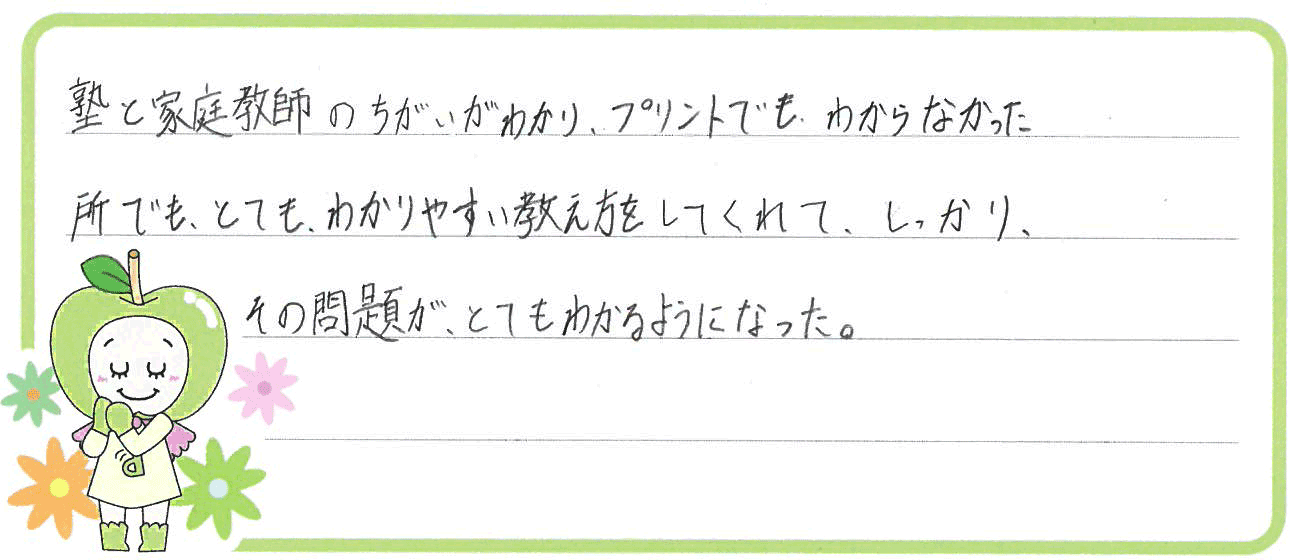 塾と家庭教師のちがいがわかり、プリントでも、わからなかった
所でも、とても、わかりやすい教え方をしてくれて、しっかり、
その問題が、とてもわかるようになった。